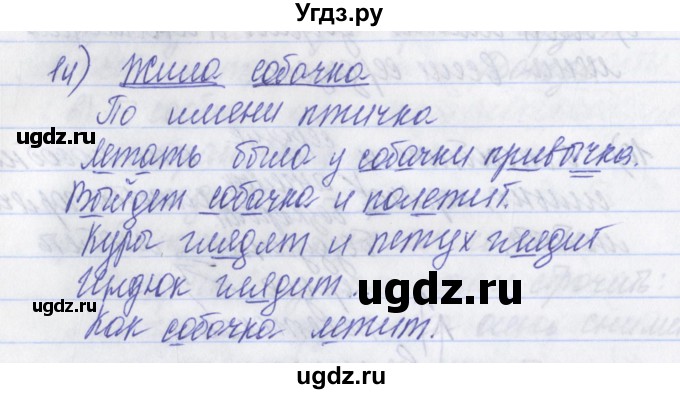 Угдз.ру
14) Жила собачка
По имени птичка
Летать была у собачки привычка.
ugdz.ru
Выйдет собачка и полетит.
Куры глядят и петух глядит
Индюк глядит.
ugdz.ru
ugdz.ru
Как собачка летит.
ugdz.ru